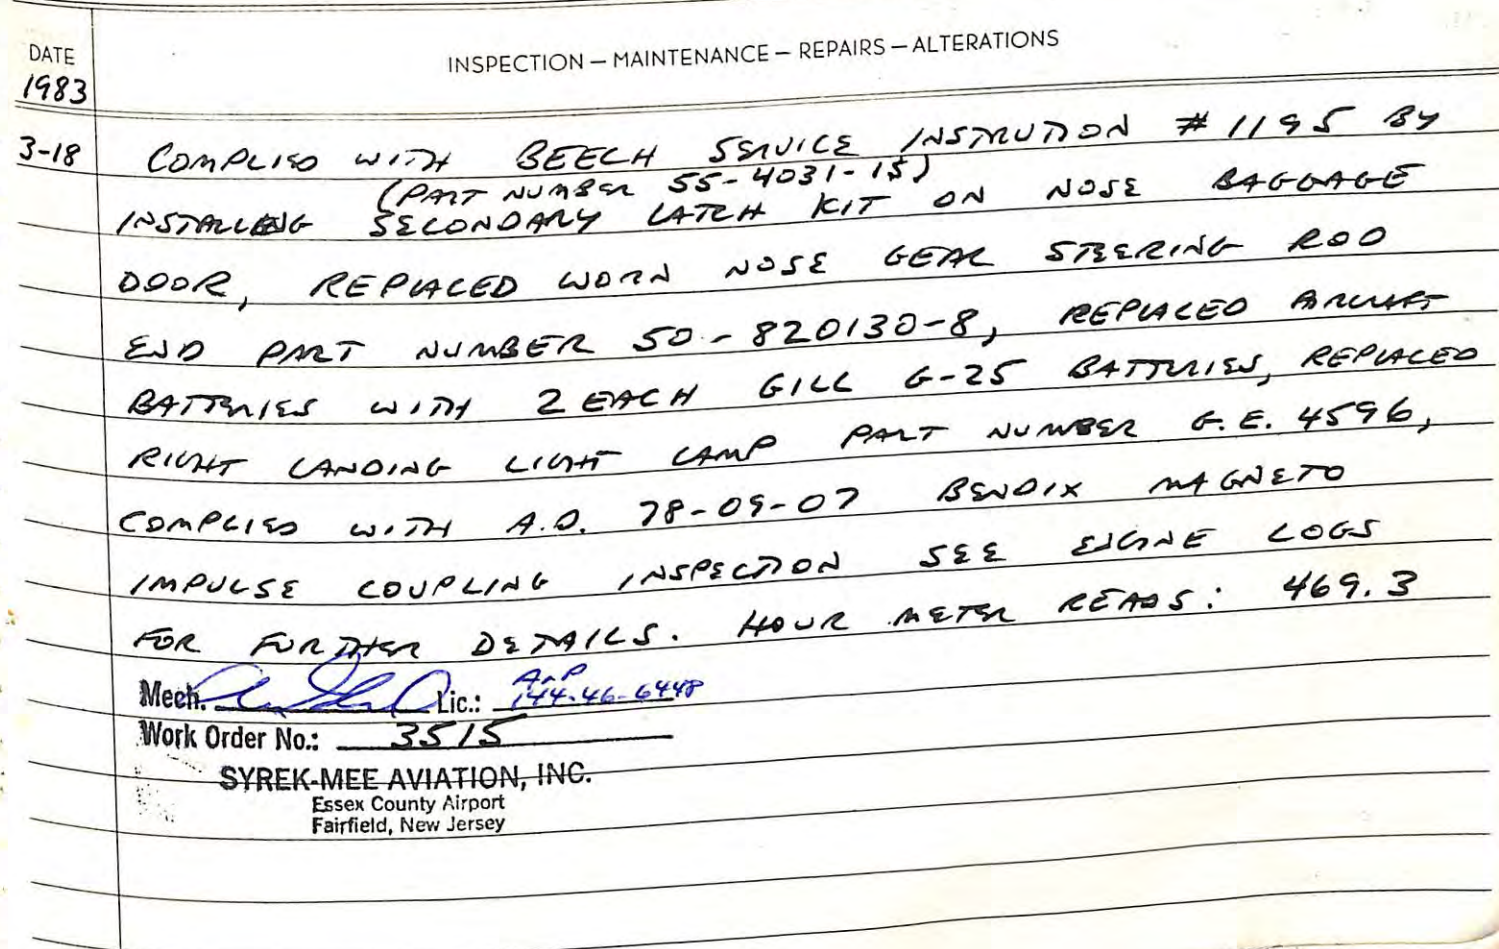 DATE
INSPECTION — MAINTENANCE — REPAIRS — ALTERATIONS
1983
3-18 COMPLIED WITH BEECH SERVICE INSTRUTION # 1195 BY
(PART NUMBER 55-4031-1S)
INSTALLING SECONDARY LATCH KIT ON NOSE BAGGAGE
DOOR, REPLACED WORN NOSE GEAR STEERING ROD
END PART NUMBER 50-820130-8, REPLACED AIRCRAFT
BATTERIES WITH 2 EACH GILL G-25 BATTERIES, REPLACED
RIGHT LANDING LIGHT LAMP PART NUMBER G.E. 4596,
COMPLIED WITH A.D. 78-09-07 BENDIX MAGNETO
IMPULSE COUPLING INSPECTION SEE ENGINE LOGS
FOR FURTHER DETAILS. HOUR METER READS: 469.3
Mech. Lic.: A&P
144-46-6448
Work Order No.: 3515
SYREK-MEE AVIATION, INC.
Essex County Airport
Fairfield, New Jersey